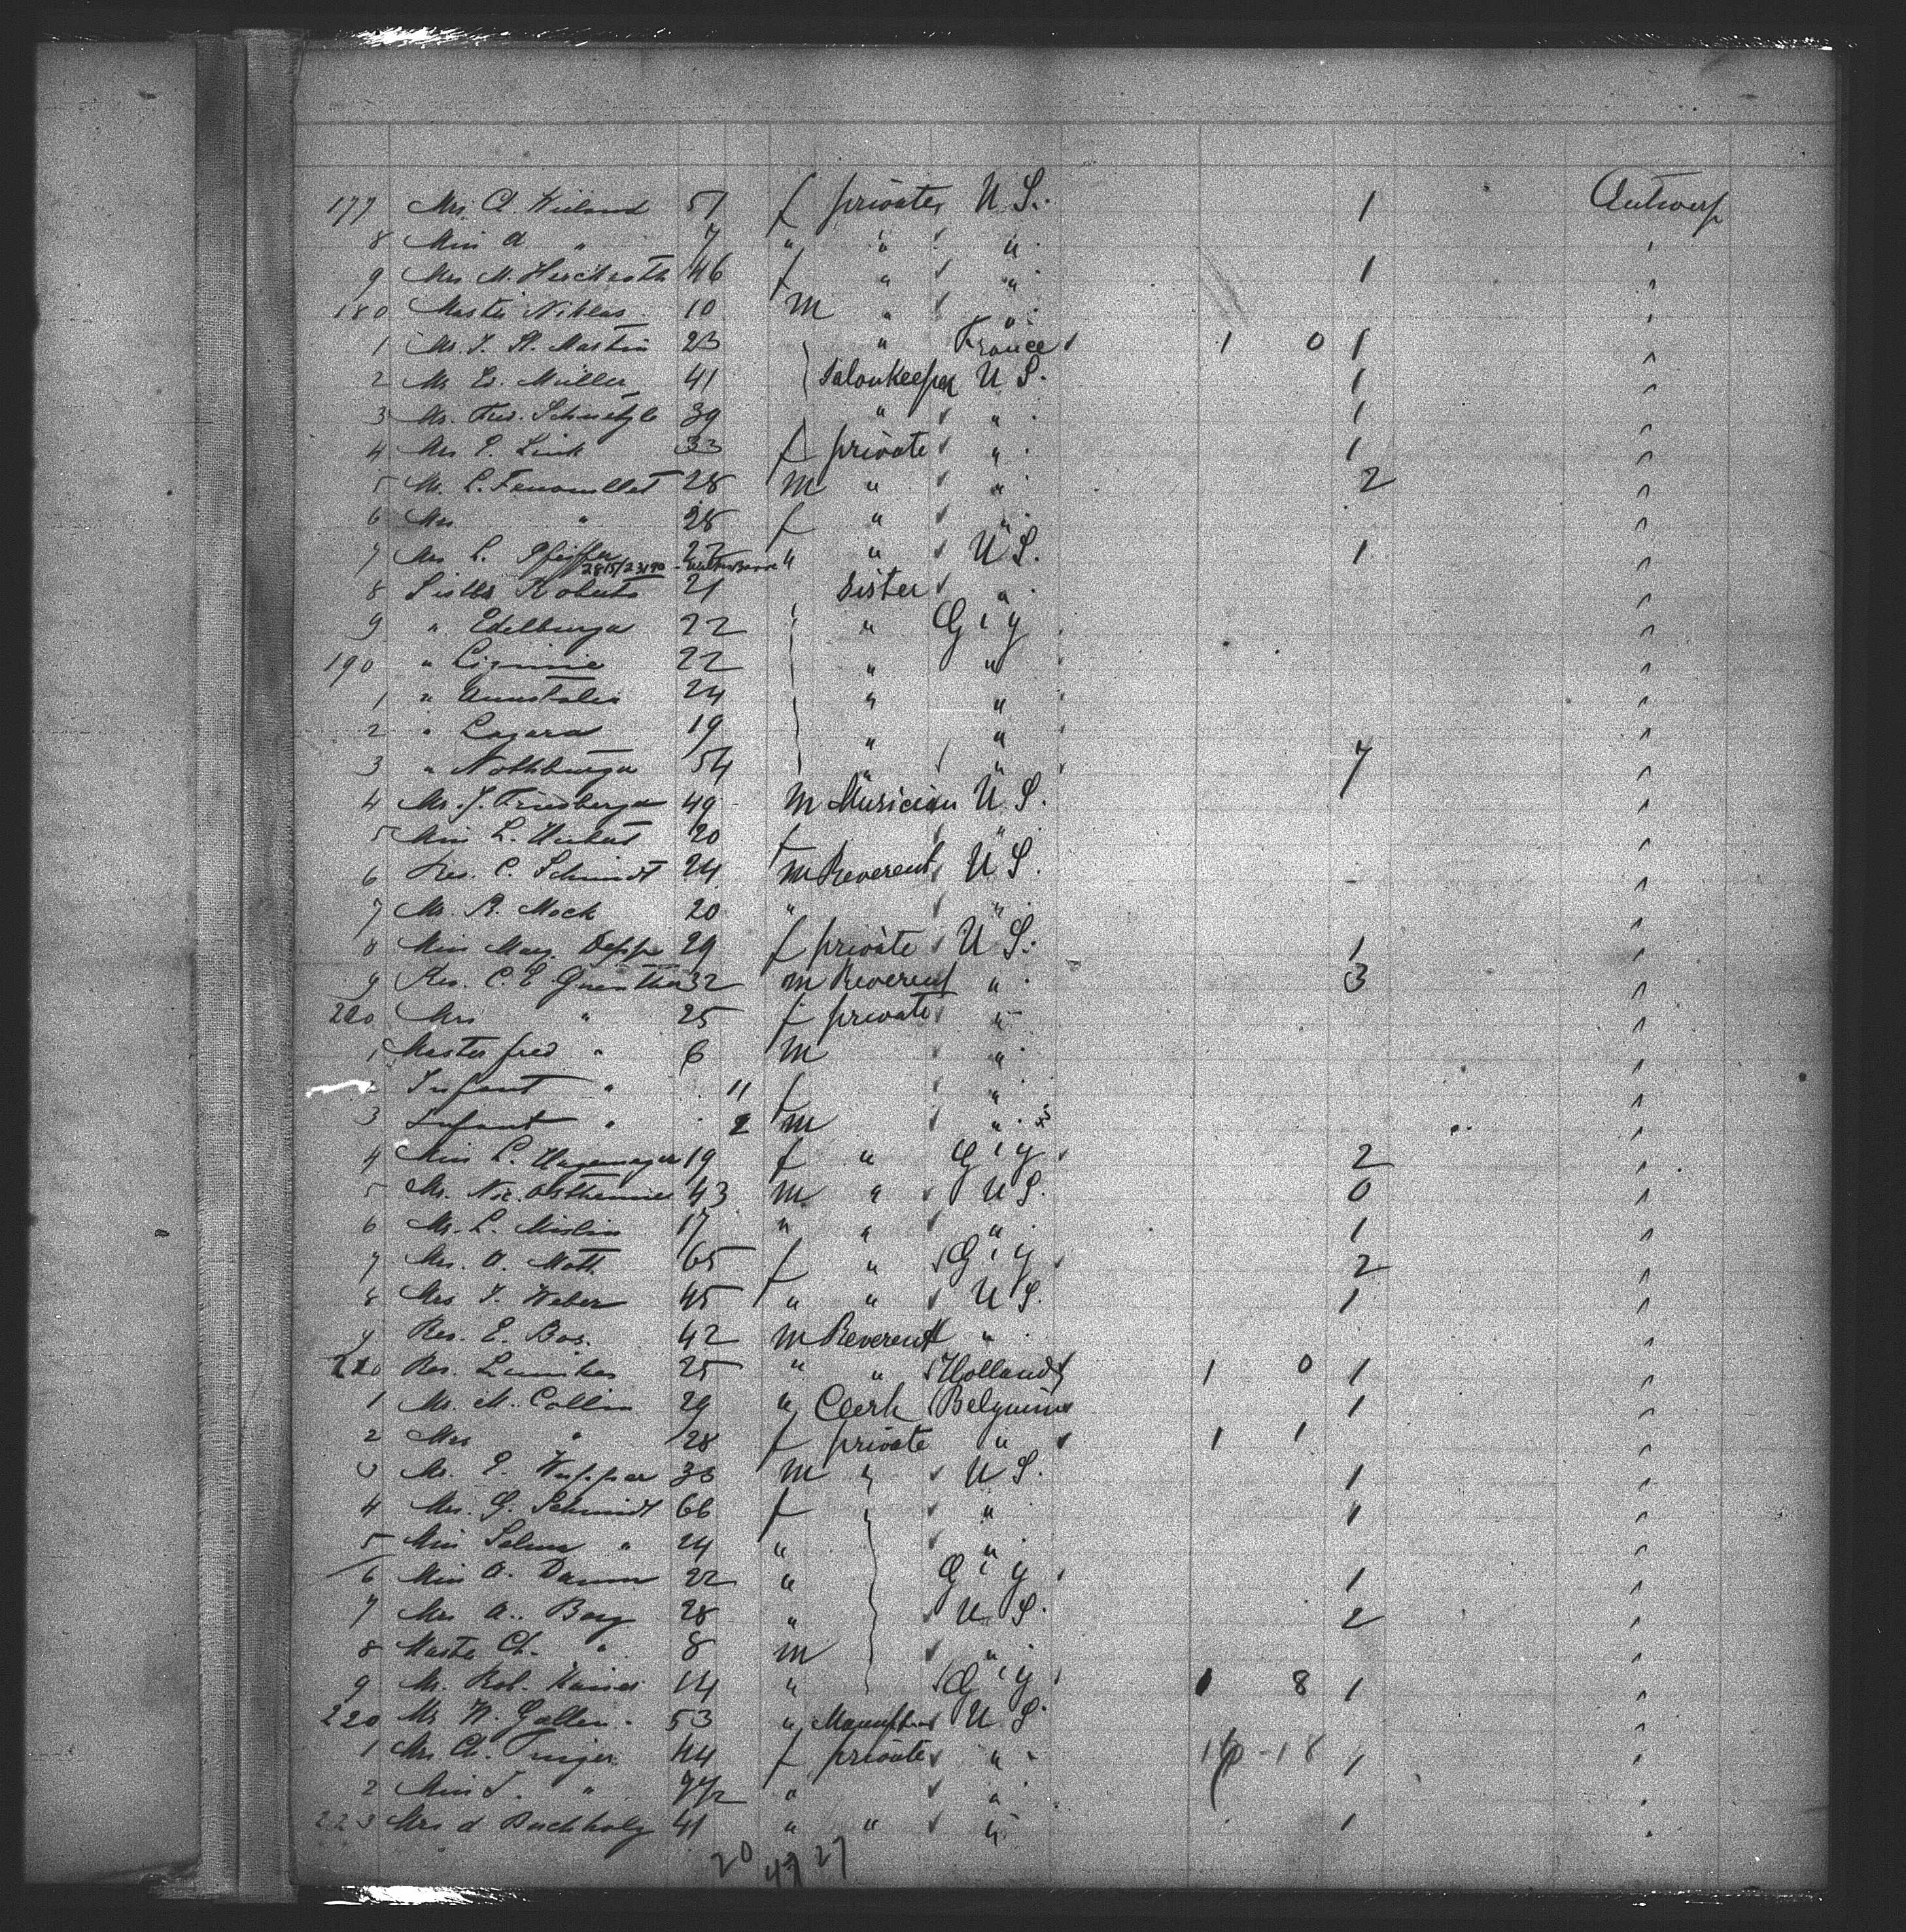 177 Mrs. A. Wieland 57 f private U S. 1 Antwerp
8 Miss A " 7 " " " "
9 Mrs. M. 46 f " " 1 "
180 Master Niklas 10 m " " "
1 Mr. J. St. Martin 23 " France 1 0 1 "
2 Mr. Müller 41 Salonkeeper U S. 1 "
3 Mr. Fred. 39 " " 1 "
4 Mrs E. Link 33 f private " 1 "
5 Mr. L. Fenouillet 28 m " " 2 "
6 Mrs " 28 f " " "
7 Mrs L. Pfeiffer 27 " " U S. 1 "
8 Sister Roberta 21 sister " "
9 " Edelburga 22 " G i y "
190 " 22 " " "
1 " 24 " " "
2 " Lazara 19 " " "
3 " Nothburga 54 " " 7 "
4 Mr. J. 49 m Musician U S. "
5 Miss L. 20 f " "
6 Rev. C. Schmidt 24 m Reverent U S. "
7 Mr. R. Mock 20 " " "
8 Miss Mary Deppe 29 f private U S. 1 "
9 Rev. C. E Guenther 32 m Reverent " 3 "
200 Mrs " 25 f private " "
1 Master fred " 6 m " "
2 Infant " 11 f " "
3 Infant " 2 m " "
4 Miss L. Hagemeyer 19 f " G i y 2 "
5 Mr. Nic. 43 m " U S. 0 "
6 Mr. L. Mislin 17 " " " 1 "
7 Mrs. A. Mott 65 f " G i y 2 "
8 Mrs J. Weber 45 " " U S. 1 "
9 Rev. E. Bos. 42 m Reverent " "
210 Rev. 25 " " Holland 1 0 1 "
1 Mr. M. Collin 29 " Clerk Belguim 1 "
2 Mrs " 28 f private " 1 1 "
3 Mr. E. m " U S. 1 "
4 Mrs. G. Schmidt 66 f " " 1 "
5 Miss Selma " 24 " " "
6 Miss A. Damm 22 " G i y 1 "
7 Mrs A. Berg 28 " U S. 2 "
8 Master Ch. " 8 m " "
9 Mr. Rob. 14 " G i y 1 8 1 "
220 Mr W. 53 " U S. "
1 Mrs Ch. 44 f private " 18 1 "
2 Miss J. " 9 1/2 " " "
223 Mrs A Buchholz 41 " " " 1 "
20 47 27